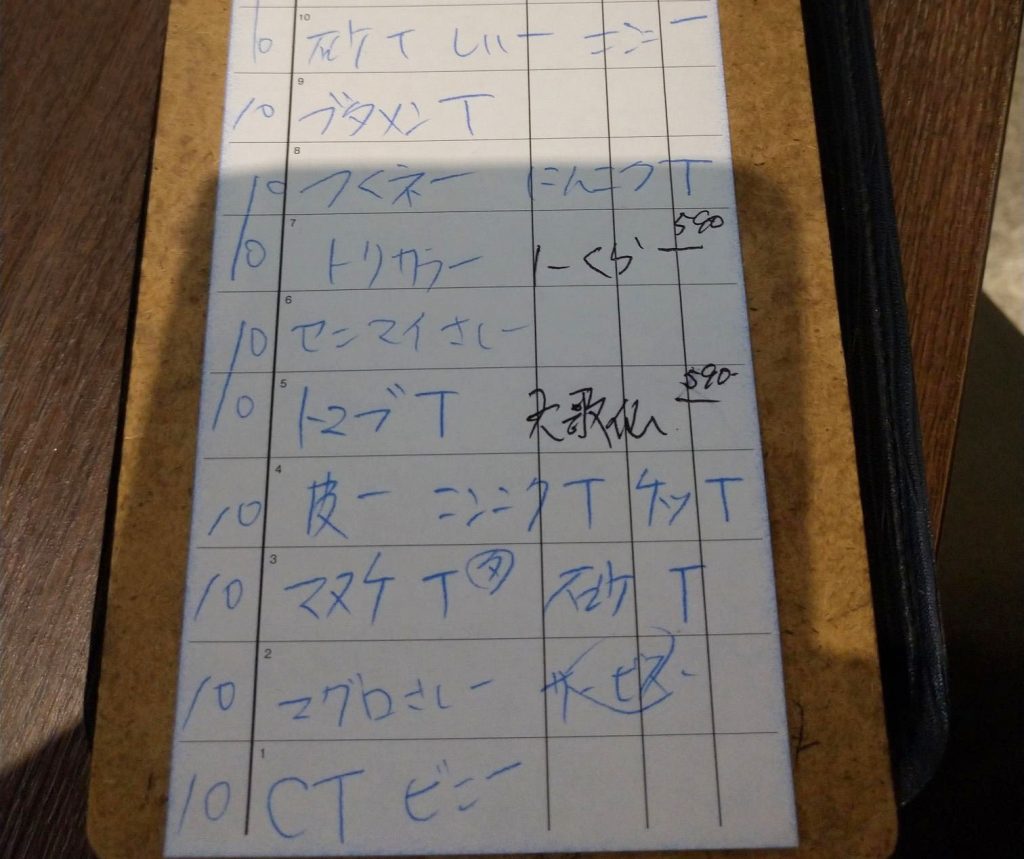 10 10 砂ケT しいー ニンニー
10 9 ブタメンT
10 8 つくネー にんニクT
10 7 トリカラー 590
10 6 センマイさしー
10 5 トマブT 590-
10 4 皮ー ニンニクT T
10 3 マヌケT タ 砂ケT
10 2 マグロさしー サービスー
10 1 CT ビニー